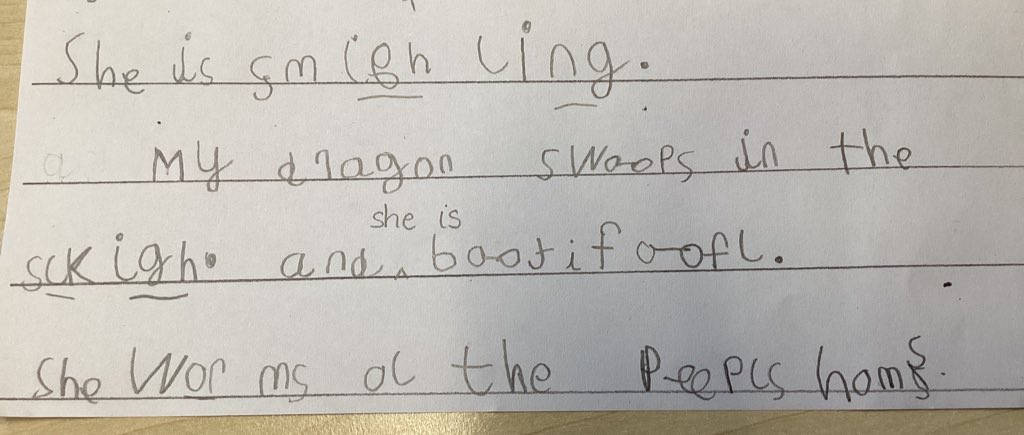 She is smighling.
my dragon swoops in the
sckigh. and she is bootifoofl.
She worms ol the Peepls homs.